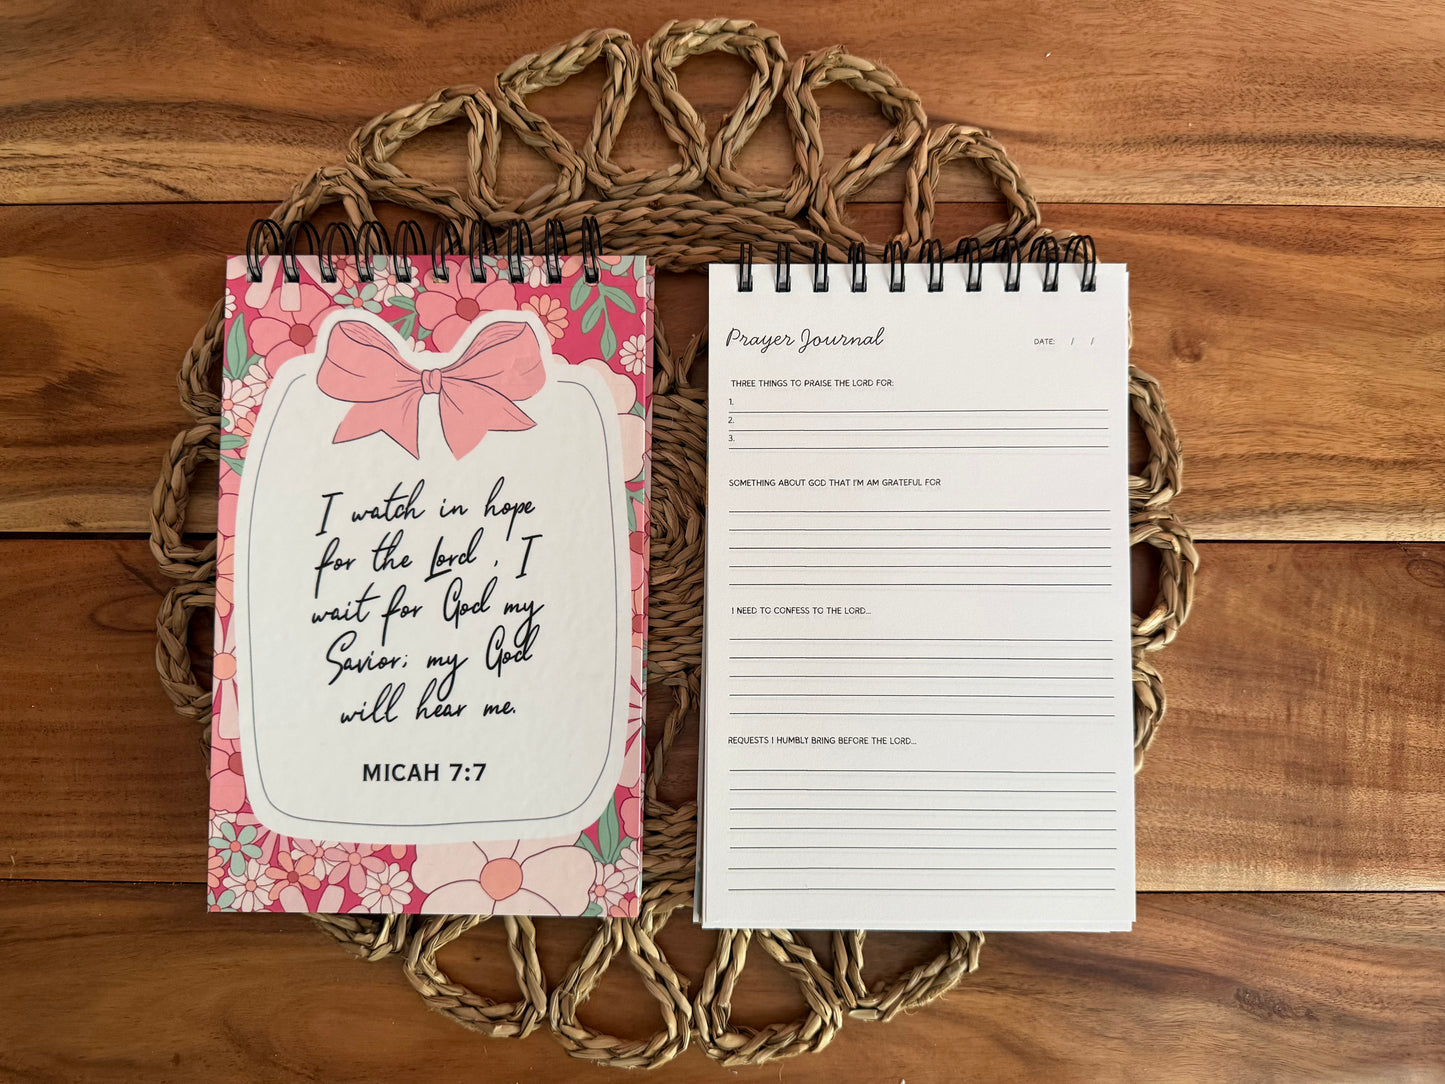 I watch in hope
for the Lord , I
wait for God my
Savior; my God
will hear me.
MICAH 7:7
Prayer Journal
DATE: / /
THREE THINGS TO PRAISE THE LORD FOR:
1.
2.
3.
SOMETHING ABOUT GOD THAT I'M AM GRATEFUL FOR
I NEED TO CONFESS TO THE LORD...
REQUESTS I HUMBLY BRING BEFORE THE LORD...